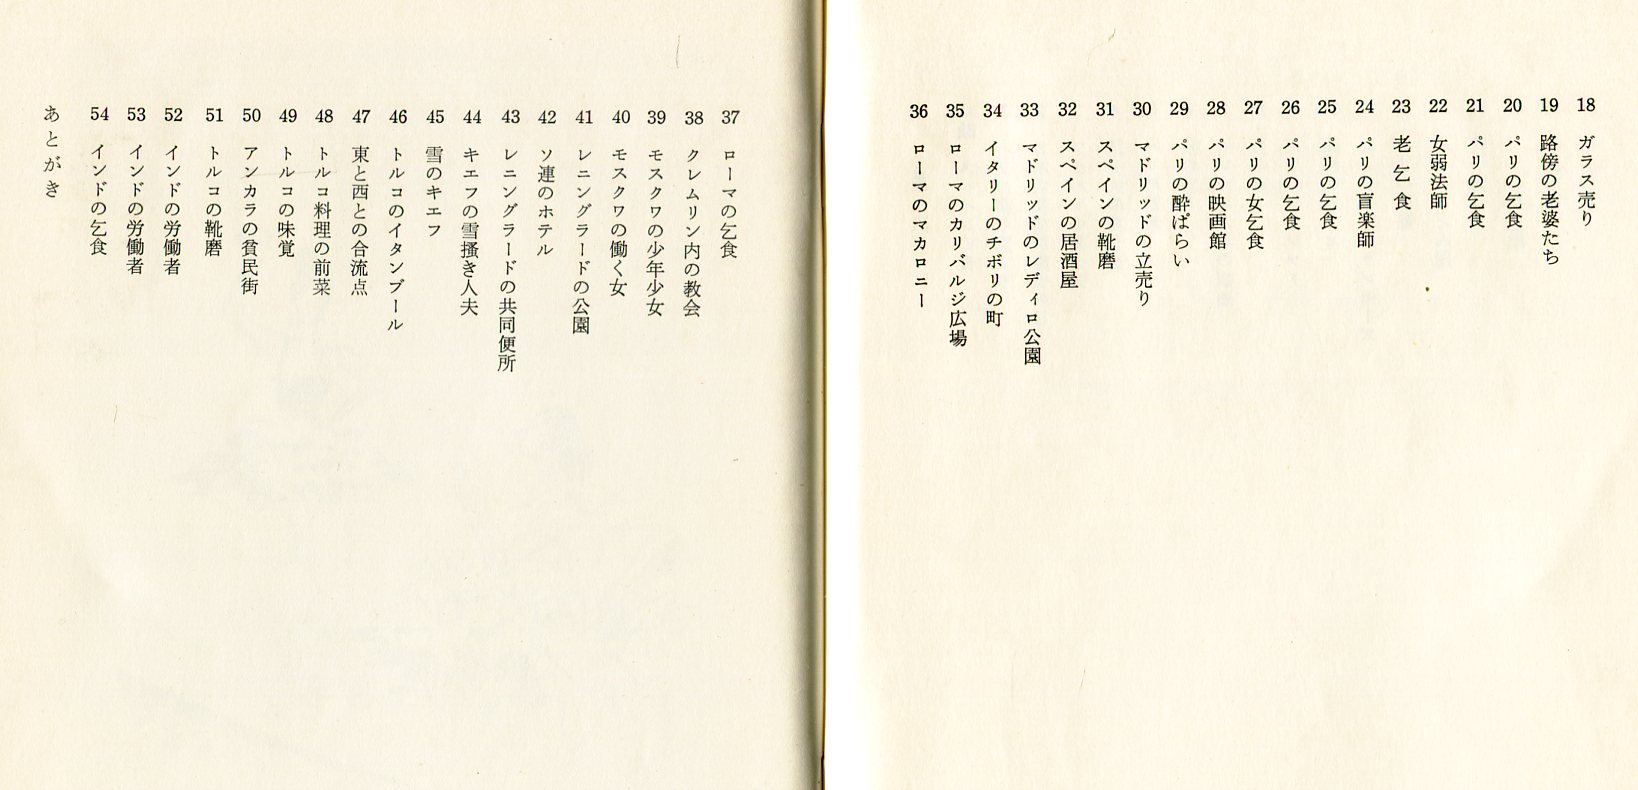 18 ガラス売り
19 路傍の老婆たち
20 パリの乞食
21 パリの乞食
22 女弱法師
23 老乞食
24 パリの盲楽師
25 パリの乞食
26 パリの乞食
27 パリの女乞食
28 パリの映画館
29 パリの酔ぱらい
30 マドリッドの立売り
31 スペインの靴磨
32 スペインの居酒屋
33 マドリッドのレディロ公園
34 イタリーのチボリの町
35 ローマのカリバルジ広場
36 ローマのマカロニー
37 ローマの乞食
38 クレムリン内の教会
39 モスクワの少年少女
40 モスクワの働く女
41 レニングラードの公園
42 ソ連のホテル
43 レニングラードの共同便所
44 キエフの雪搔き人夫
45 雪のキエフ
46 トルコのイタンブール
47 東と西との合流点
48 トルコ料理の前菜
49 トルコの味覚
50 アンカラの貧民街
51 トルコの靴磨
52 インドの労働者
53 インドの労働者
54 インドの乞食
あとがき